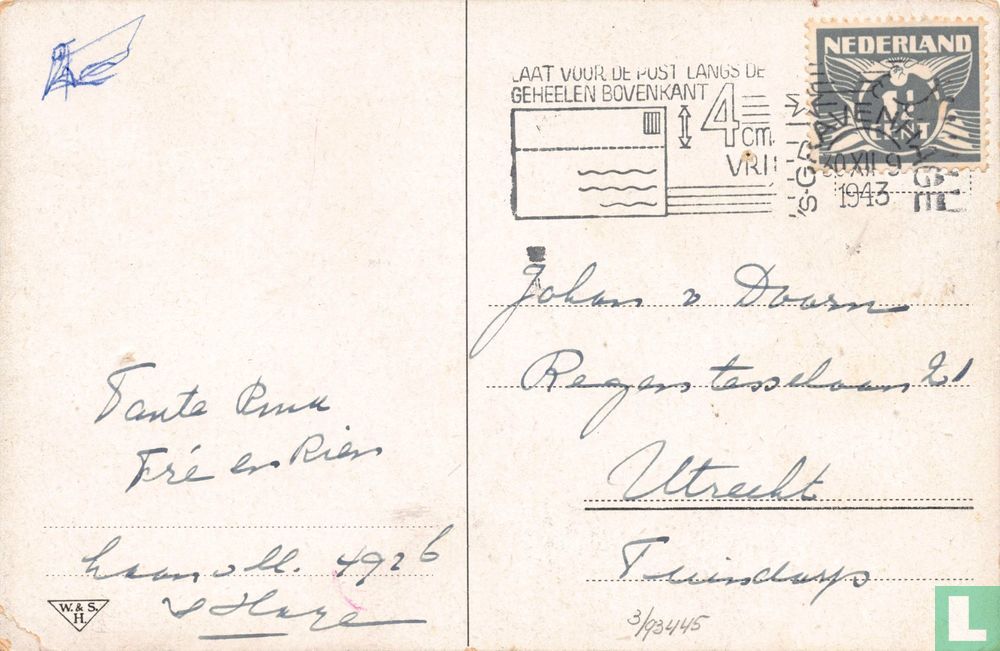 LAAT VOOR DE POST LANGS DE
GEHEELEN BOVENKANT
4
cm.
VRIJ
'S-GRAVENHAGE
30 XII 9
1943
NEDERLAND
CENT
Johan v Doorn
21
Utrecht
Tuindorp
Tante
Fré en Rien
492b
s Hage
W. & S.
H.
3/93445
L